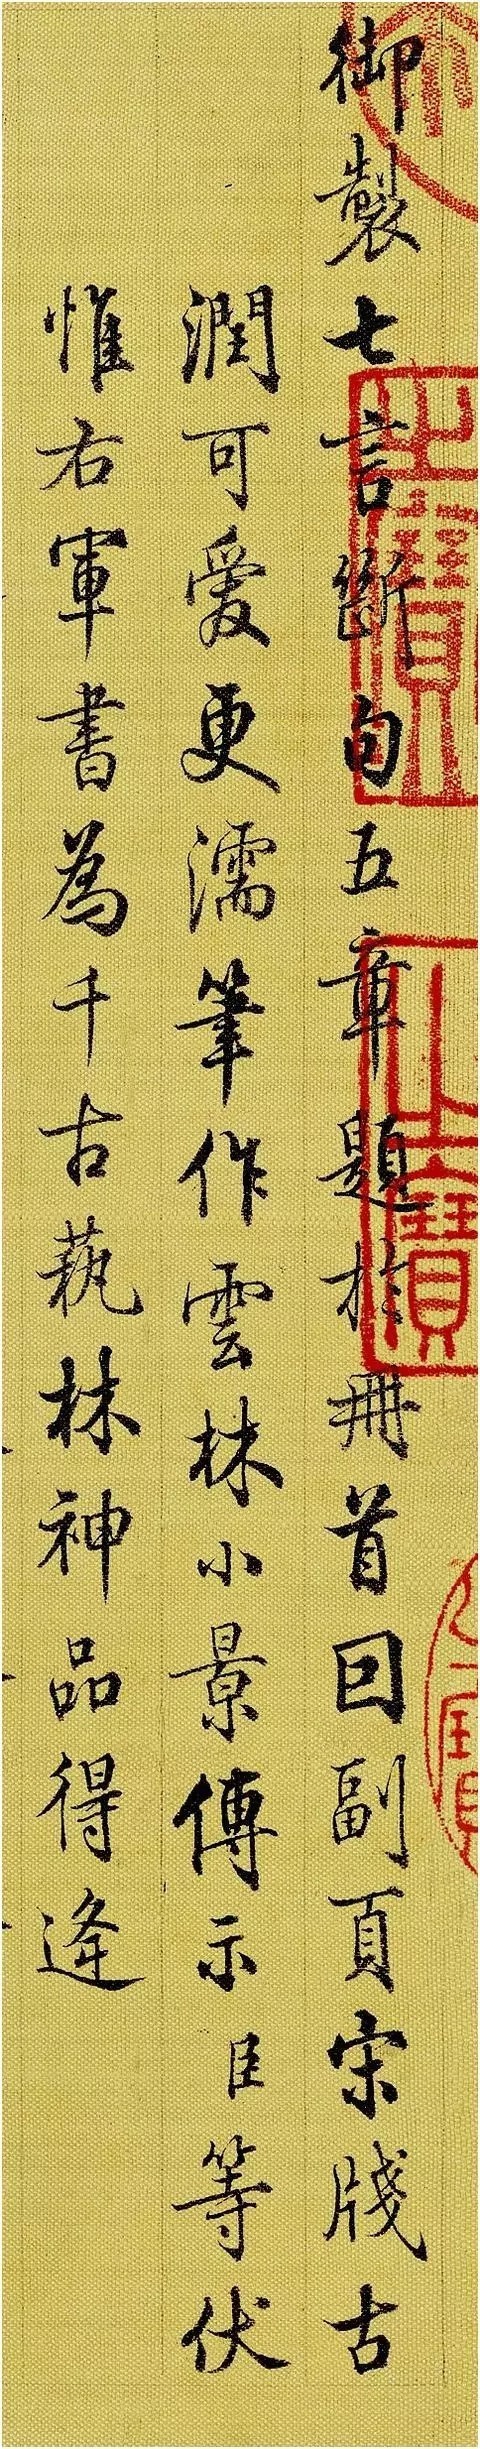 御製七言斷句五章題於冊首回副頁宋牋古
潤可愛更濡筆作雲林小景傳示臣等伏
惟右軍書為千古藝林神品得逢